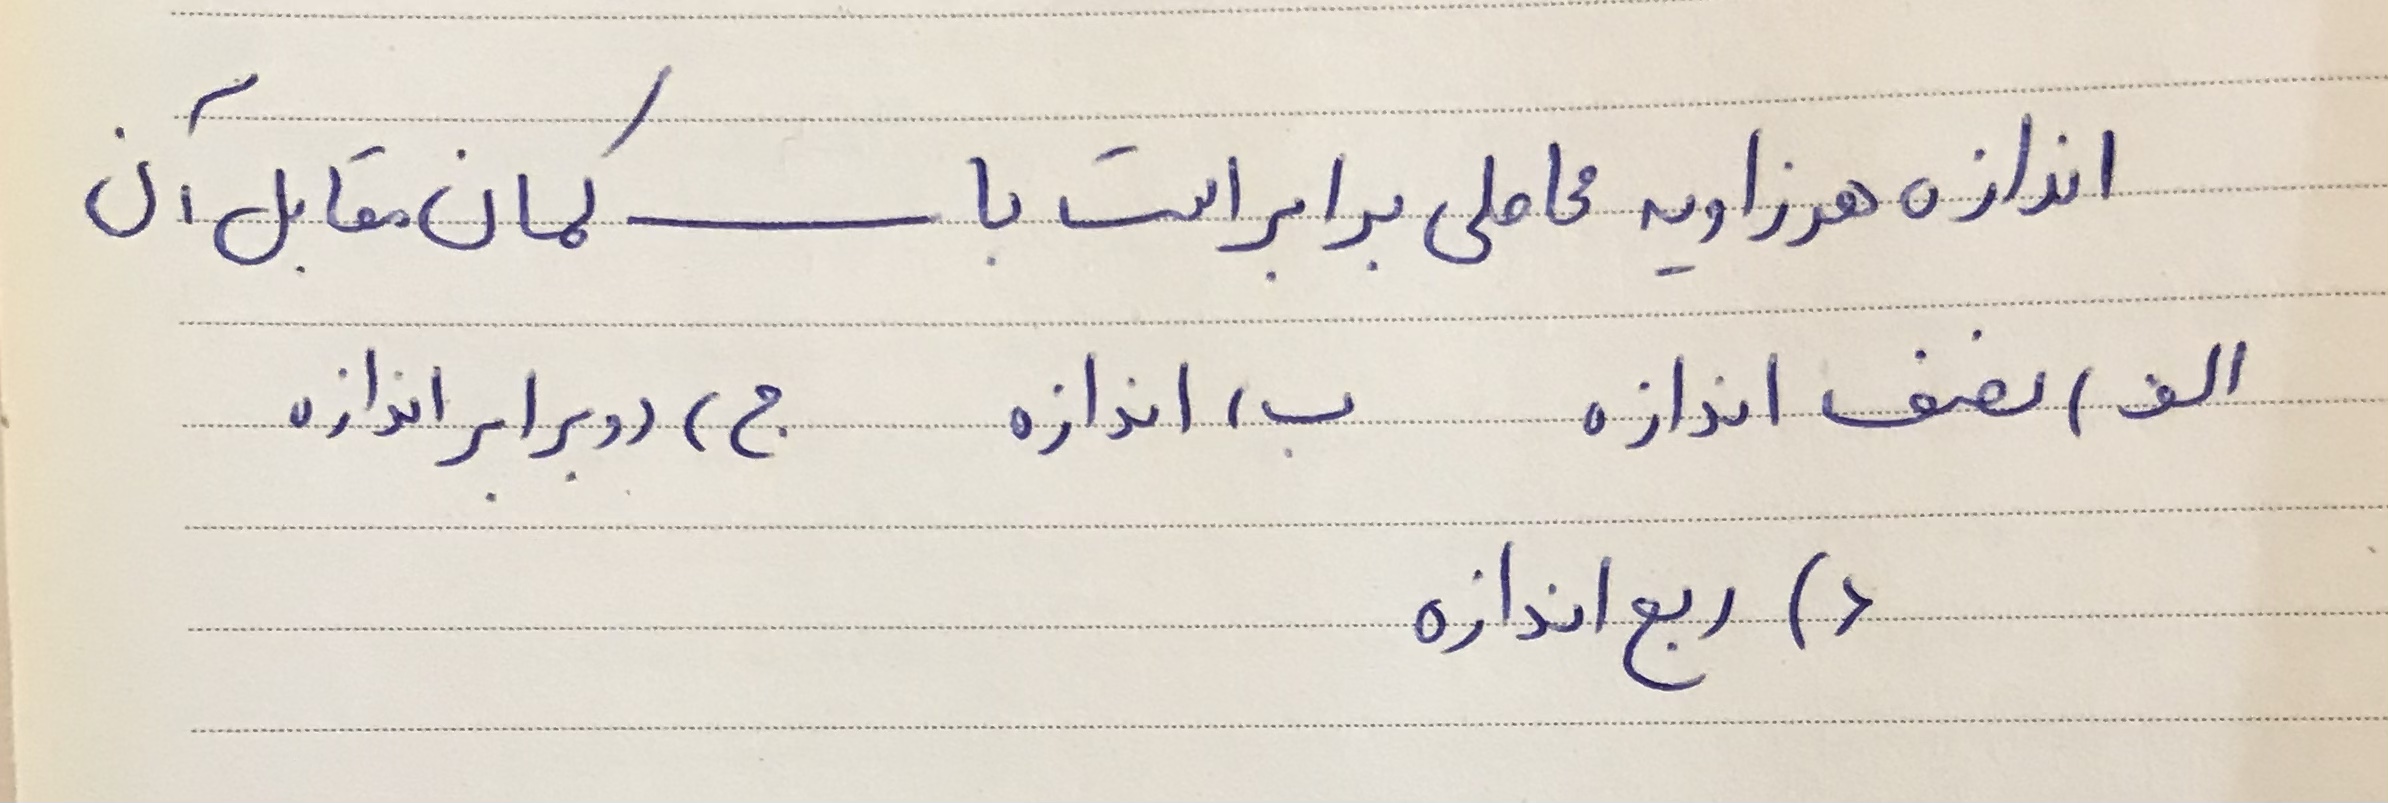 اندازه هر زاویه محاطی برابر است با ــــــــ کمان مقابل آن
الف) نصف اندازه ب) اندازه ج) دو برابر اندازه
د) ربع اندازه